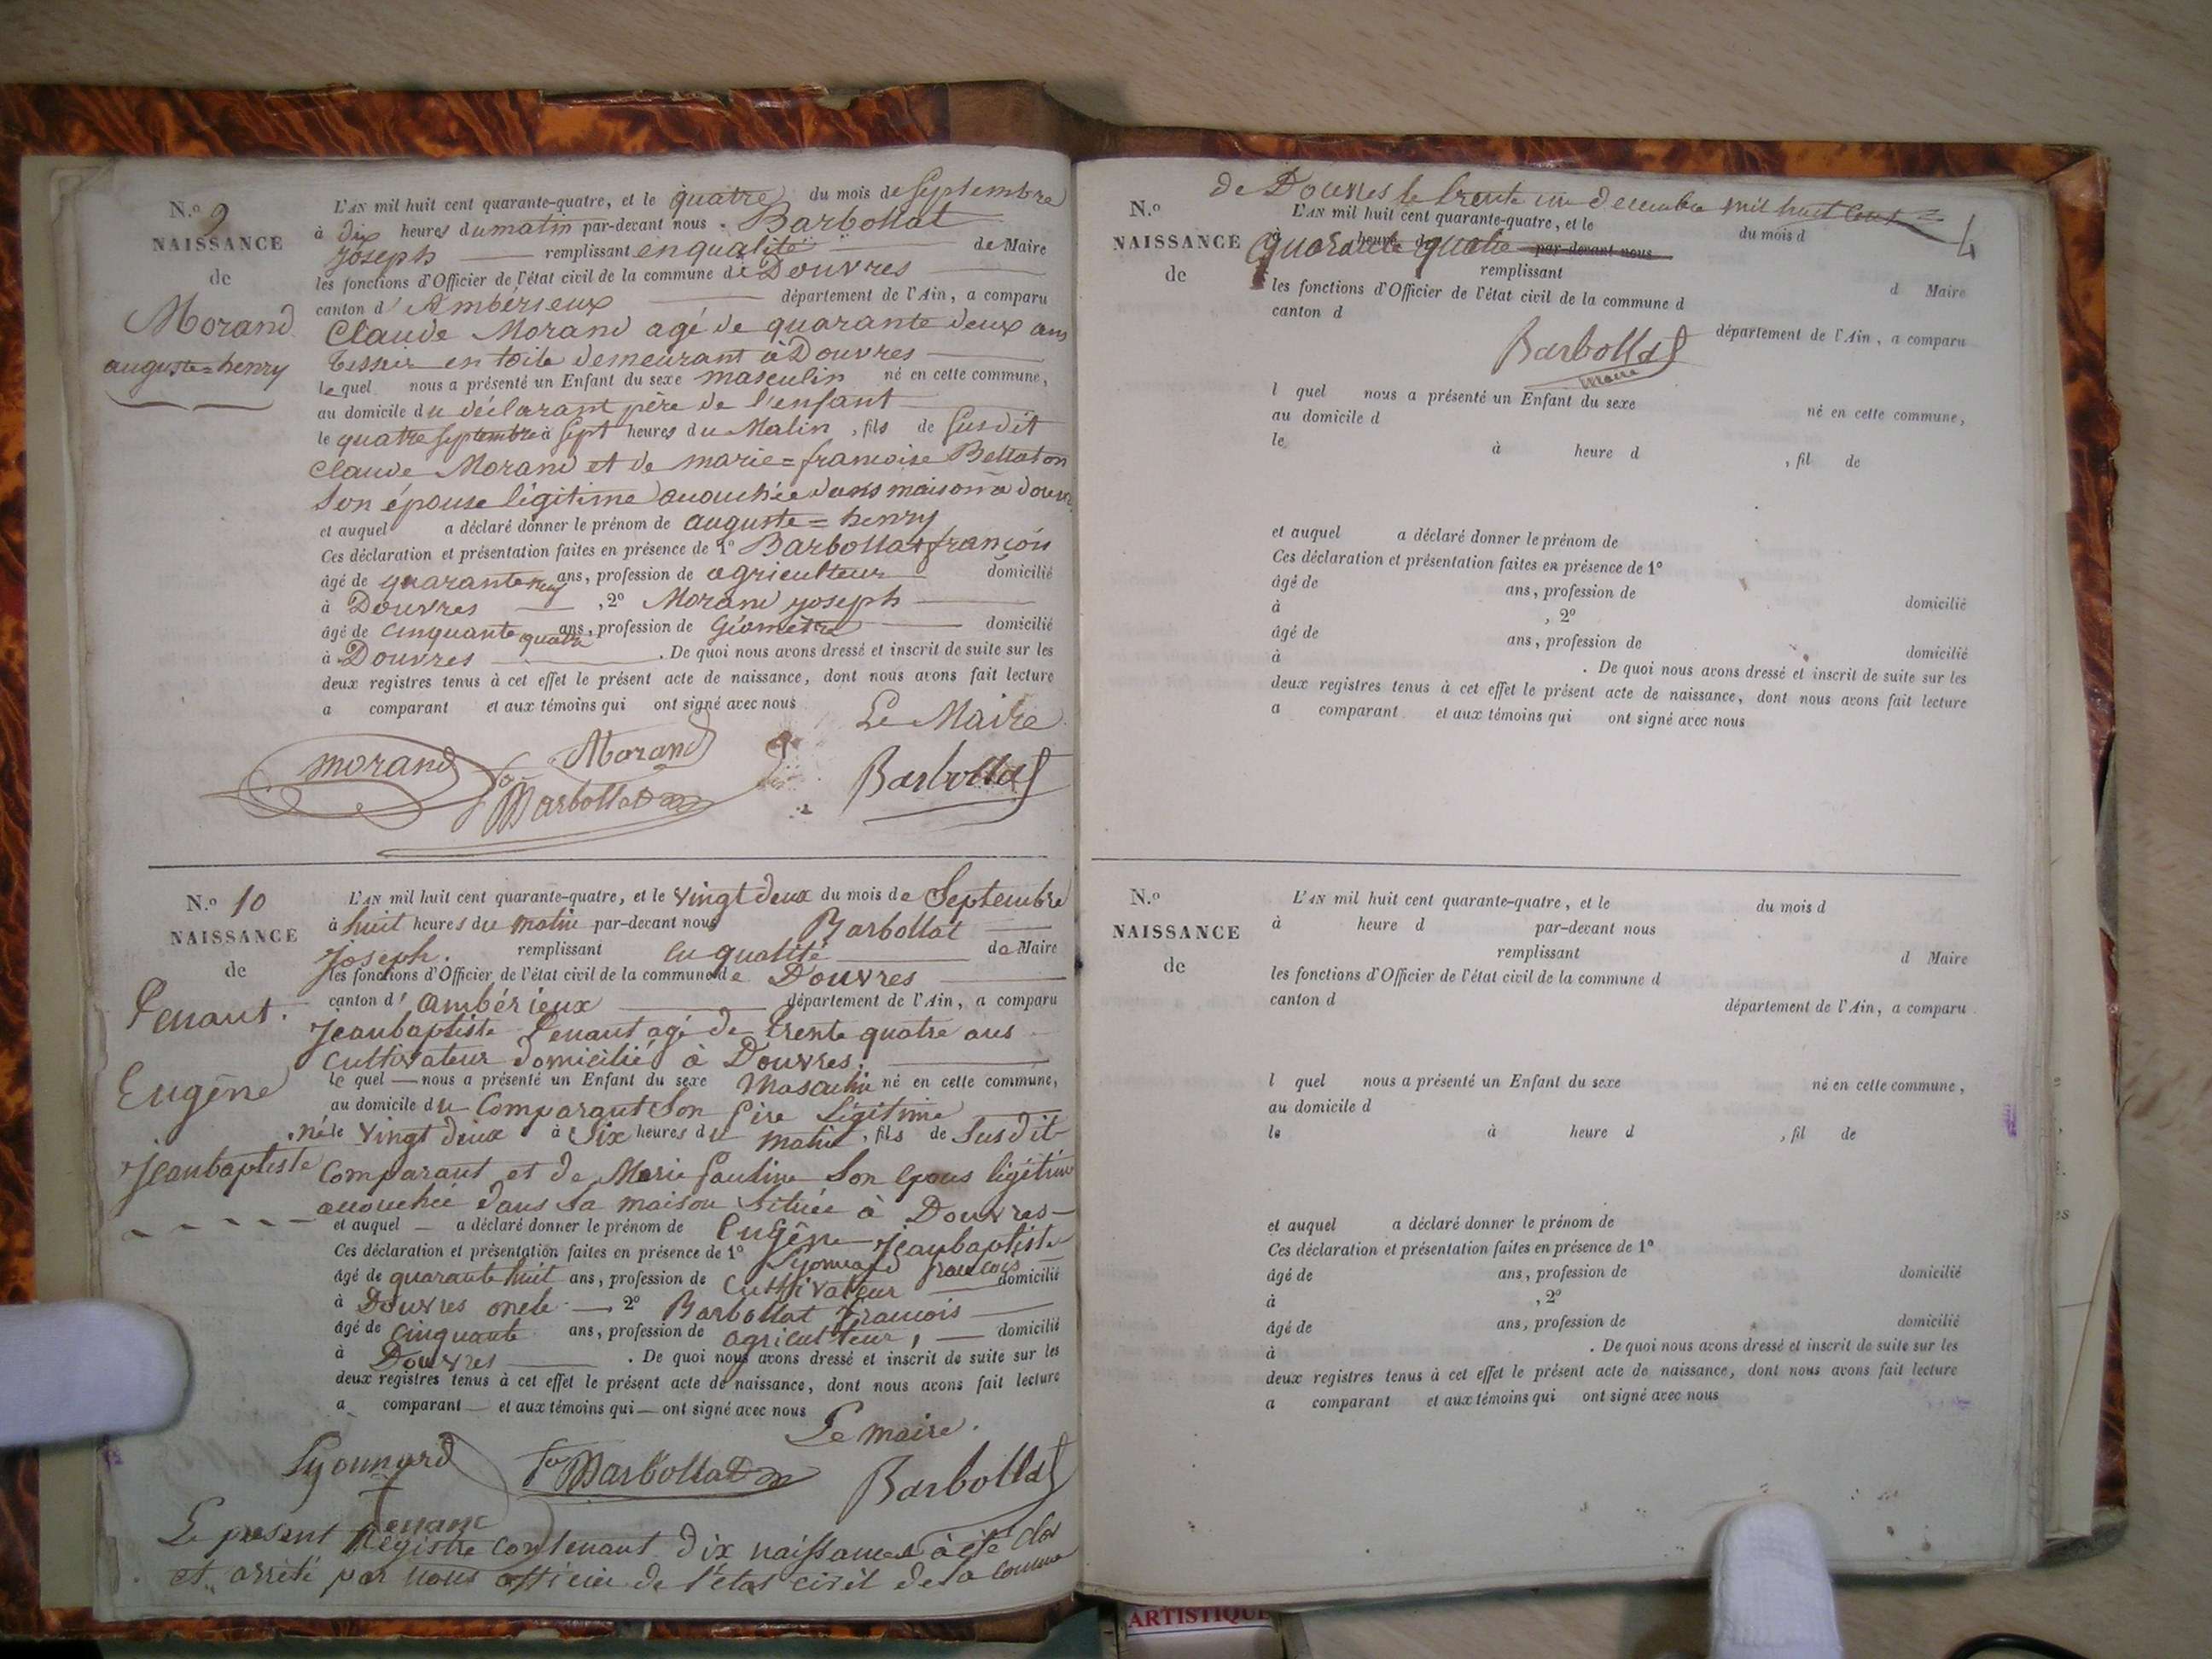 N.º 9
NAISSANCE
de
Morand
auguste=henry
L'AN mil huit cent quarante-quatre, et le quatre du mois de Septembre
à dix heures du matin par-devant nous Barbollat
Joseph remplissant en qualité de Maire
les fonctions d'Officier de l'état civil de la commune de Douvres
canton d'Ambérieux département de l'Ain, a comparu
Claude Morand agé de quarante deux ans
tessier en toile demeurant à Douvres
lequel nous a présenté un Enfant du sexe masculin né en cette commune,
au domicile du déclarant père de l'enfant
le quatre Septembre à Sept heures du Matin, fils de Susdit
Claude Morand et de marie=francoise Bellaton
Son épouse légitime accouchée dans maison à douvres
et auquel a déclaré donner le prénom de auguste=henry
Ces déclaration et présentation faites en présence de 1º Barbollat françois
âgé de quarante neuf ans, profession de agriculteur domicilié
à Douvres, 2º Morand joseph
âgé de cinquante quatre ans, profession de Géomètre domicilié
à Douvres. De quoi nous avons dressé et inscrit de suite sur les
deux registres tenus à cet effet le présent acte de naissance, dont nous avons fait lecture
a comparant et aux témoins qui ont signé avec nous
Le Maire
morand Morand
fois Barbollat Barbollat
N.º 10
NAISSANCE
de
Penant.
Eugène
Jeanbaptiste
L'AN mil huit cent quarante-quatre, et le vingt deux du mois de Septembre
à huit heures du matin par-devant nous Barbollat
Joseph. remplissant en qualité de Maire
les fonctions d'Officier de l'état civil de la commune de Douvres
canton d'ambérieux département de l'Ain, a comparu
Jeanbaptiste Penant agé de trente quatre ans
Cultivateur domicilié à Douvres.
lequel nous a présenté un Enfant du sexe Masculin né en cette commune,
au domicile du Comparant Son Père Légitime
né le vingt deux à Six heures du matin, fils de Susdit
Comparant et de Marie Son epous légitime
accouchée dans Sa maison Située à Douvres
et auquel a déclaré donner le prénom de Eugène Jeanbaptiste
Ces déclaration et présentation faites en présence de 1º Lyonnard francois
âgé de quarante huit ans, profession de Cultivateur domicilié
à Douvres oncle, 2º Barbollat francois
âgé de Cinquante ans, profession de agriculteur, domicilié
à Douvres. De quoi nous avons dressé et inscrit de suite sur les
deux registres tenus à cet effet le présent acte de naissance, dont nous avons fait lecture
a comparant et aux témoins qui ont signé avec nous
Le maire.
Lyonnard fois Barbollat Barbollat
Penant
Le present Registre contenant dix naissances à été clos
et arrêté par nous officier de l'état civil de la Commune
de Douvres le trente un decembre mil huit cent
quarante quatre
4
Barbollat
maire
N.º
NAISSANCE
de
L'AN mil huit cent quarante-quatre, et le du mois d
à heure d par-devant nous
remplissant d Maire
les fonctions d'Officier de l'état civil de la commune d
canton d département de l'Ain, a comparu
l quel nous a présenté un Enfant du sexe né en cette commune,
au domicile d
le à heure d, fil de
et auquel a déclaré donner le prénom de
Ces déclaration et présentation faites en présence de 1º
âgé de ans, profession de domicilié
à, 2º
âgé de ans, profession de domicilié
à. De quoi nous avons dressé et inscrit de suite sur les
deux registres tenus à cet effet le présent acte de naissance, dont nous avons fait lecture
a comparant et aux témoins qui ont signé avec nous
N.º
NAISSANCE
de
L'AN mil huit cent quarante-quatre, et le du mois d
à heure d par-devant nous
remplissant d Maire
les fonctions d'Officier de l'état civil de la commune d
canton d département de l'Ain, a comparu
l quel nous a présenté un Enfant du sexe né en cette commune,
au domicile d
le à heure d, fil de
et auquel a déclaré donner le prénom de
Ces déclaration et présentation faites en présence de 1º
âgé de ans, profession de domicilié
à, 2º
âgé de ans, profession de domicilié
à. De quoi nous avons dressé et inscrit de suite sur les
deux registres tenus à cet effet le présent acte de naissance, dont nous avons fait lecture
a comparant et aux témoins qui ont signé avec nous
ARTISTIQUE